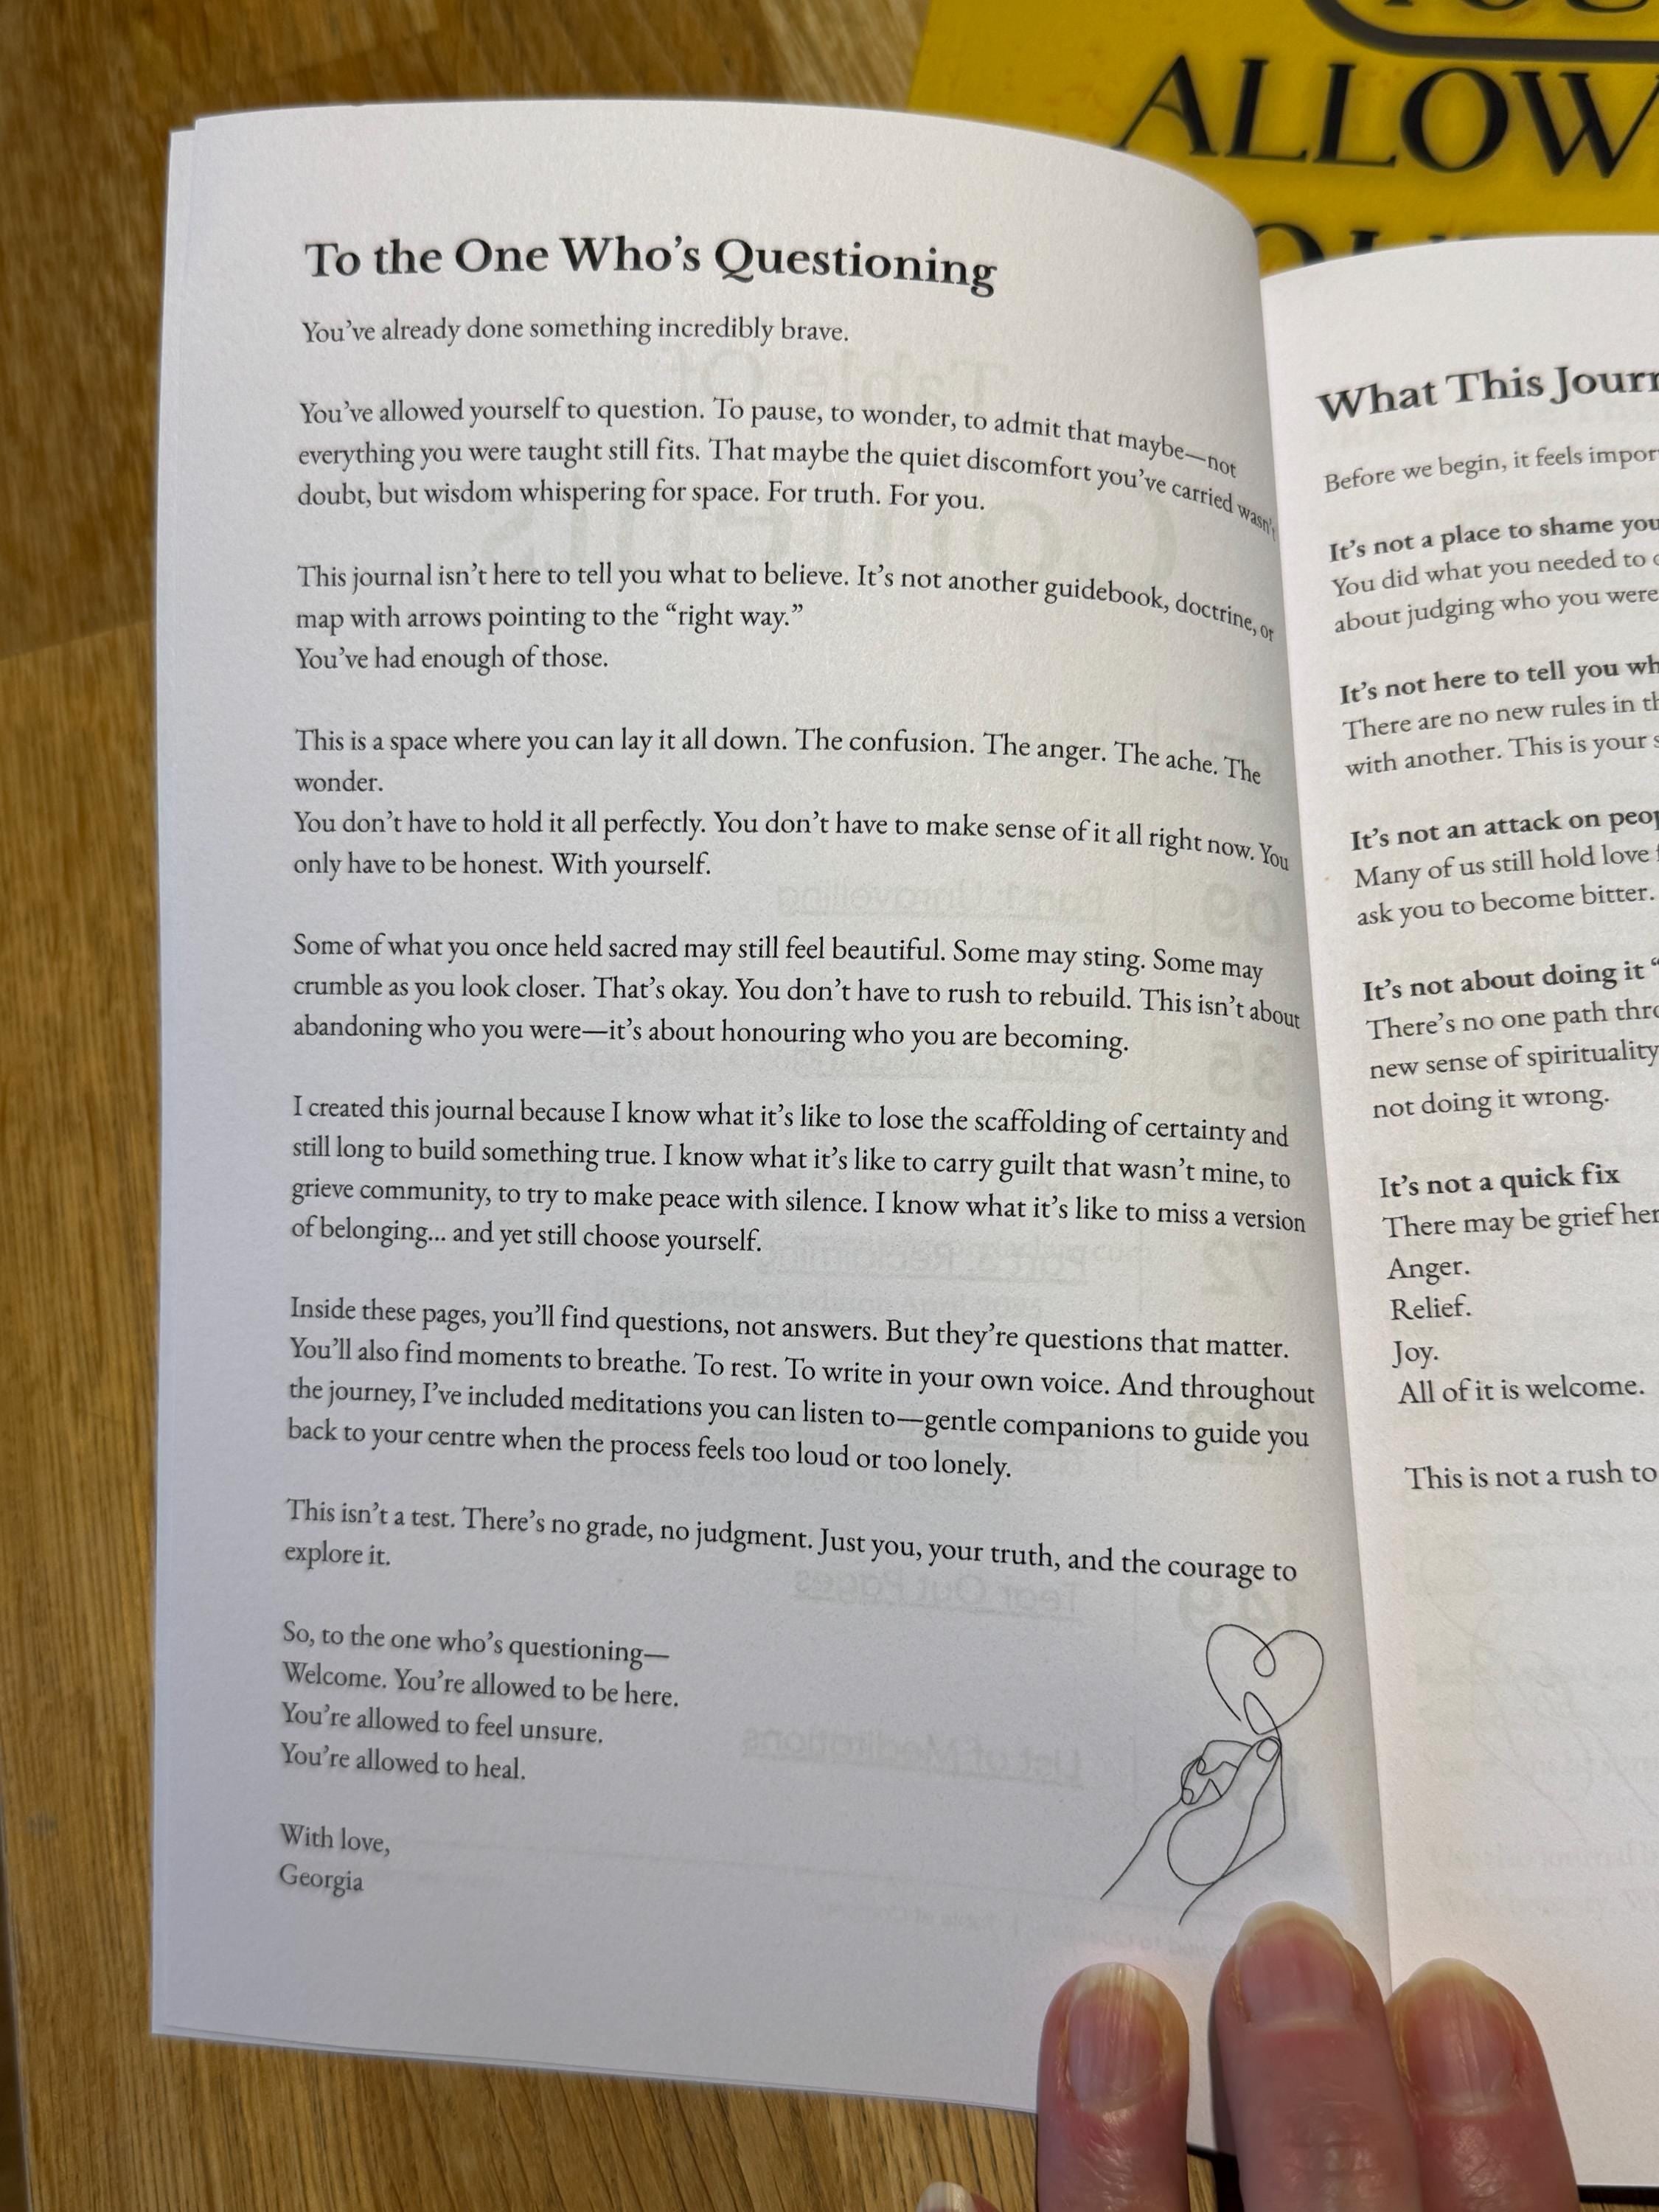 ALLOW
To the One Who's Questioning
You've already done something incredibly brave.
You've allowed yourself to question. To pause, to wonder, to admit that maybe—not
everything you were taught still fits. That maybe the quiet discomfort you've carried wasn't
doubt, but wisdom whispering for space. For truth. For you.
This journal isn't here to tell you what to believe. It's not another guidebook, doctrine, or
map with arrows pointing to the “right way.”
You've had enough of those.
This is a space where you can lay it all down. The confusion. The anger. The ache. The
wonder.
You don't have to hold it all perfectly. You don't have to make sense of it all right now. You
only have to be honest. With yourself.
Some of what you once held sacred may still feel beautiful. Some may sting. Some may
crumble as you look closer. That's okay. You don't have to rush to rebuild. This isn't about
abandoning who you were—it's about honouring who you are becoming.
I created this journal because I know what it's like to lose the scaffolding of certainty and
still long to build something true. I know what it's like to carry guilt that wasn't mine, to
grieve community, to try to make peace with silence. I know what it's like to miss a version
of belonging... and yet still choose yourself.
Inside these pages, you'll find questions, not answers. But they're questions that matter.
You'll also find moments to breathe. To rest. To write in your own voice. And throughout
the journey, I've included meditations you can listen to—gentle companions to guide you
back to your centre when the process feels too loud or too lonely.
This isn't a test. There's no grade, no judgment. Just you, your truth, and the courage to
explore it.
So, to the one who's questioning—
Welcome. You're allowed to be here.
You're allowed to feel unsure.
You're allowed to heal.
With love,
Georgia
What This
Before we begin, it feels
It's not a place to shame
You did what you needed to
about judging who you were
It's not here to tell you
There are no new rules in
with another. This is your
It's not an attack on
Many of us still hold love
ask you to become bitter.
It's not about doing it
There's no one path
new sense of spirituality
not doing it wrong.
It's not a quick fix
There may be grief
Anger.
Relief.
Joy.
All of it is welcome.
This is not a rush to